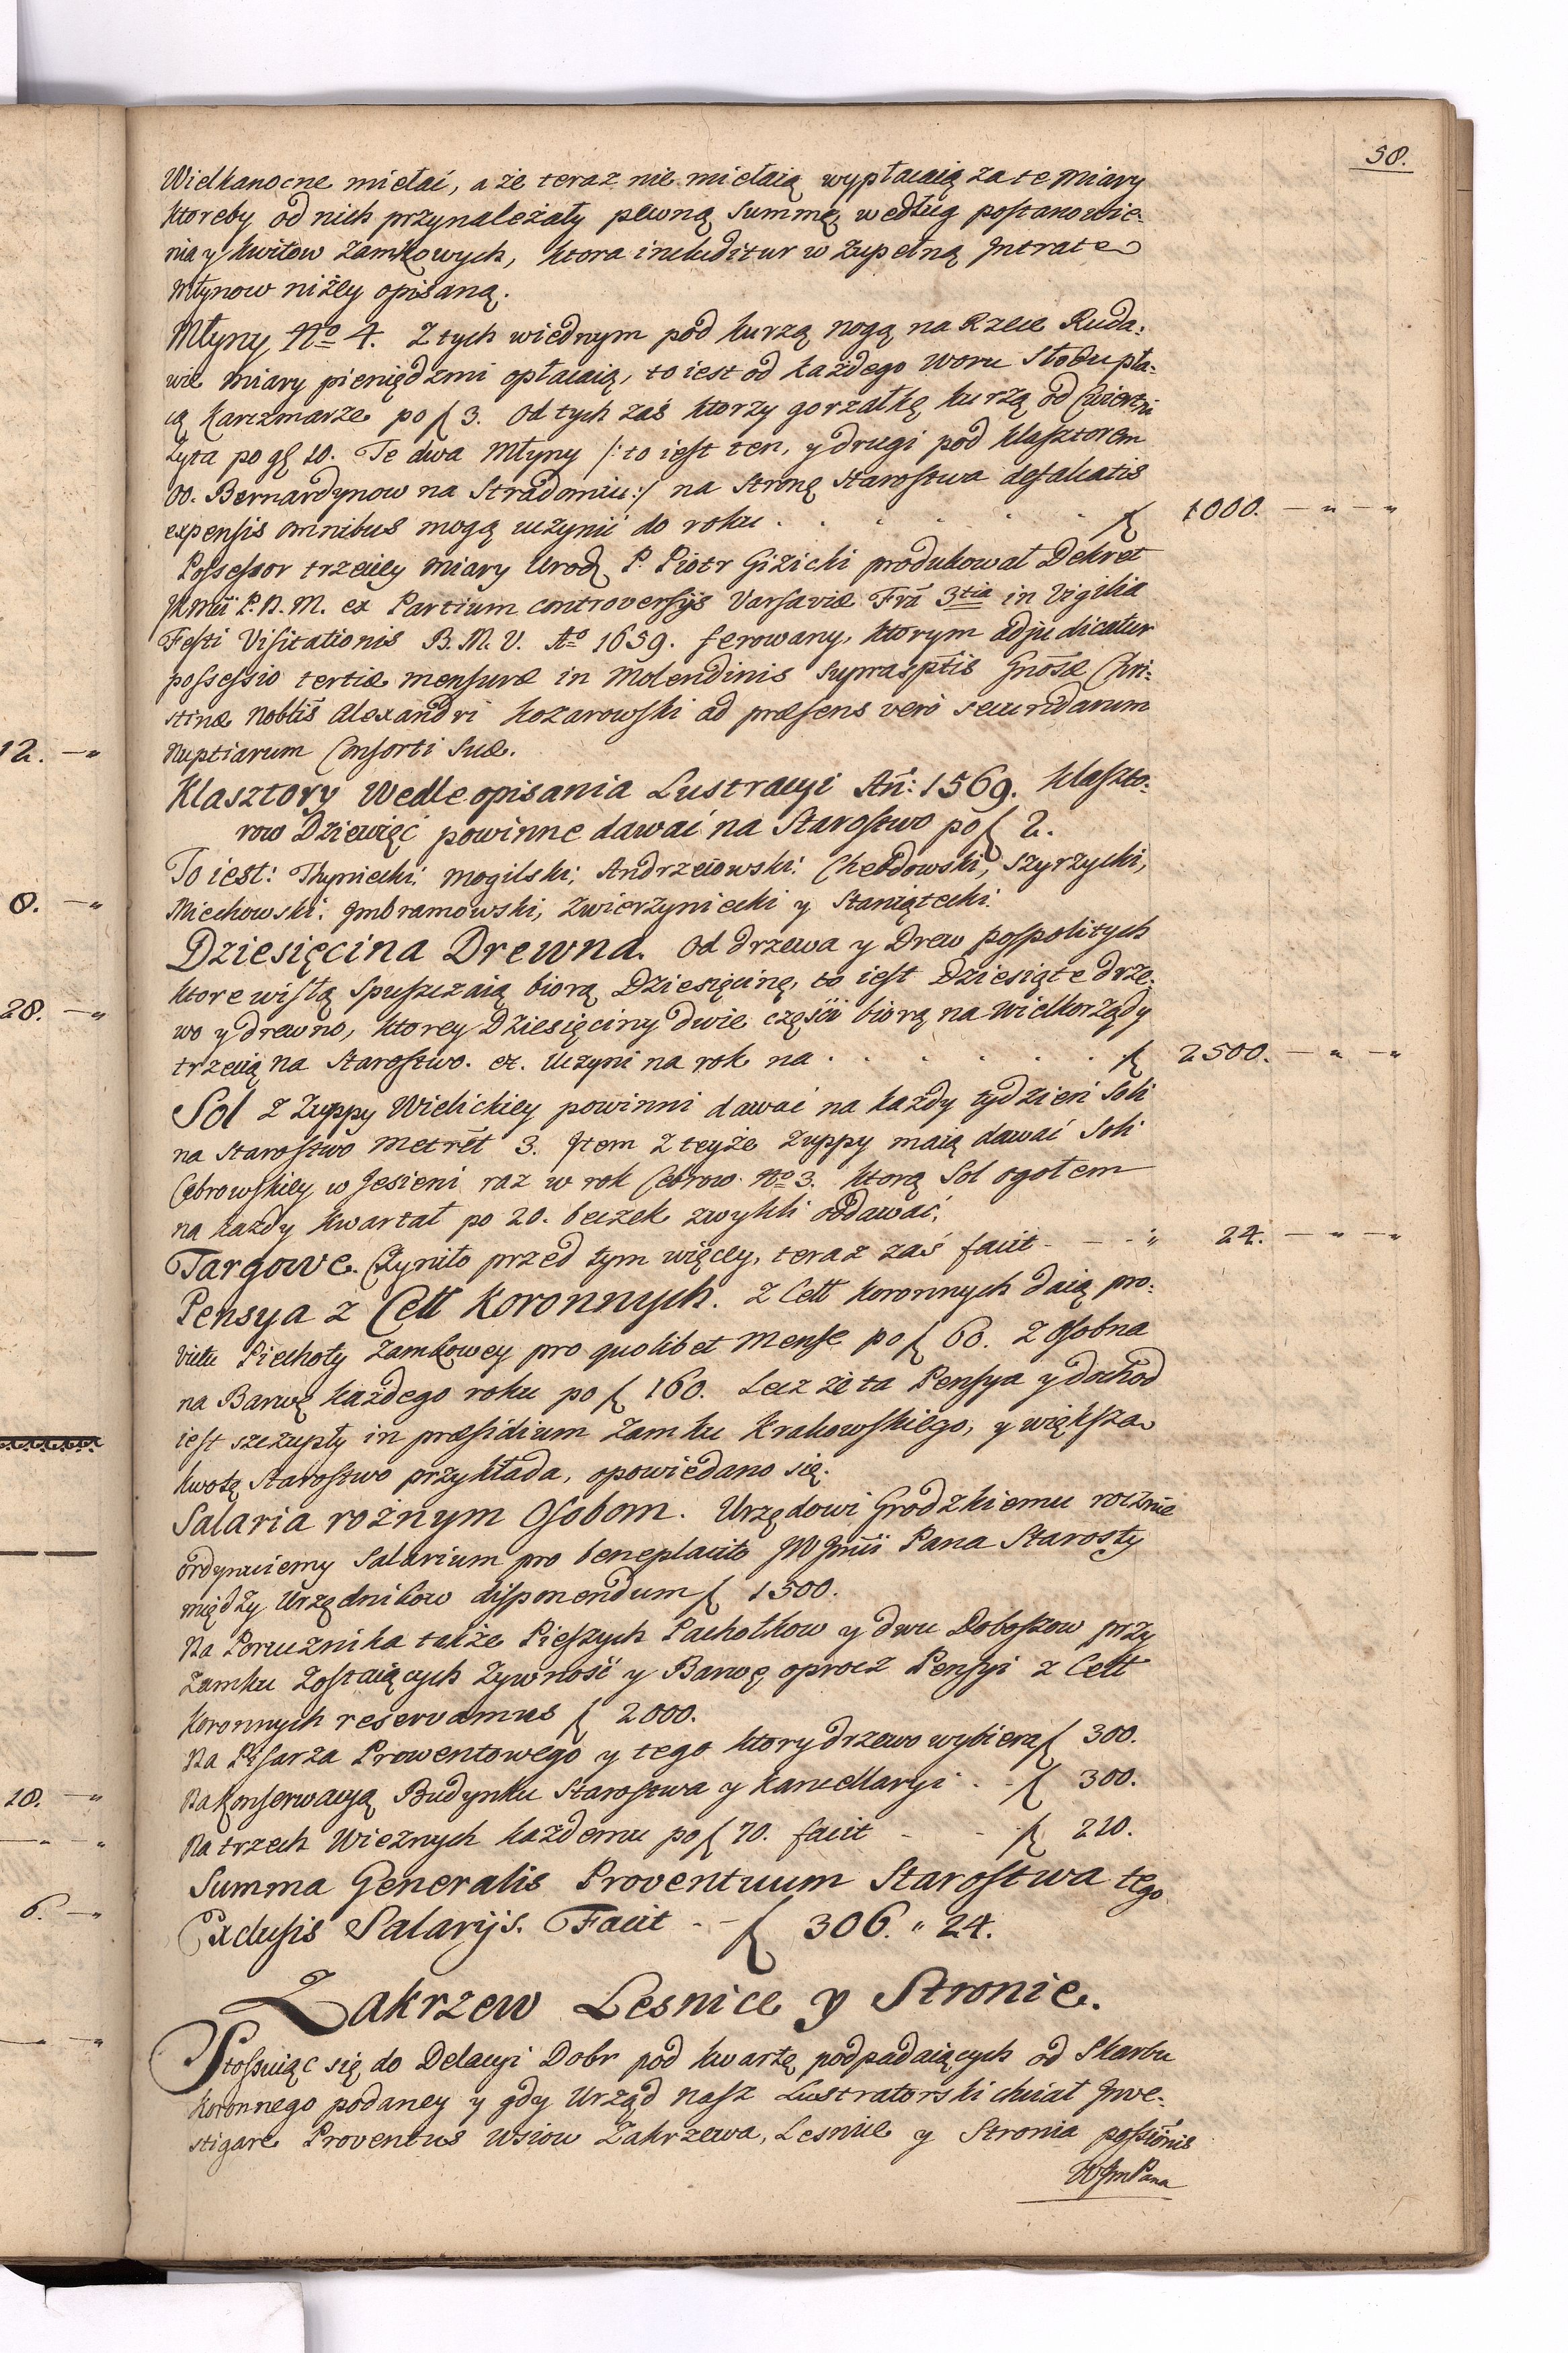 58.
Wielkanocne mietać, a że teraz nie mietaią wypłacaią za te miary
ktoreby od nich przynależały pewną summę, według postanowie-
nia y kwitow zamkowych, ktora includitur w zupełną Intratę
młynow niżey opisaną.
Młyny No 4. Z tych wiednym pod kurzą nogą na Rzece Ruda:
wie miary pieniędzmi opłacaią, to iest od każdego woru słodu pła:
cą karczmarze po f 3. Od tych zaś ktorzy gorzałkę kurzą od Cwiertni
żyta po gł 10. Te dwa Młyny /: to iest ten, y drugi pod klasztorem
OO. Bernardynow na Stradomiu:/ na stronę Starostwa defalcatis
expensis omnibus mogą uczynić do roku . . . . . . f 1000. — " — "
Possessor trzeciey miary Urod P. Piotr Giżicki produkował Dekret
JKMćii P.N.M. ex Partium controversijs Varsaviæ Fra 3tia in Vigilia
Festi Visitationis B.M.V. Ao 1659. ferowany, ktorym adjudicatur
possessio tertiæ mensuræ in Molendinis suprasptis Gnosæ Chri:
stinæ Noblis Alexandri Kozarowski ad præsens vero secundarum
Nuptiarum Consorti suæ.
Klasztory Wedle opisania Lustracyi An: 1569. klaszto:
row Dziewięć powinne dawać na Starostwo po f 2.
To iest: Thyniecki; Mogilski; Andrzeiowski; Chebdowski, Szyrzycki,
Miechowski; Imbramowski, Zwierzyniecki y Staniątecki.
Dziesięcina Drewna. Od drzewa y Drew pospolitych
ktore wisłą spuszczaią biorą Dziesięcinę, to iest Dziesiąte drze:
wo y drewno, ktorey Dziesięciny dwie części biorą na Wielkorządy
trzecią na Starostwo. &. Uczyni na rok na . . . . . . f 2500. — " — "
Sol z Zuppy Wielickiey powinni dawać na każdy tydzień Soli
na Starostwo Metret 3. Item z teyże Zuppy maią dawać Soli
Cebrowskiey w Jesieni raz w rok Cebrow No 3. ktorą Sol ogołem
na każdy kwartał po 20. beczek zwykli oddawać.
Targowe. Czyniło przed tym więcey, teraz zaś facit - — - " 24. — " — "
Pensya z Cełł Koronnych. Z Cełł koronnych daią pro:
victu Piechoty Zamkowey pro quolibet Mense po f 60. Z osobna
na Barwę każdego roku po f 160. Lecz że ta Pensya y dochod
iest szczupły in præsidium Zamku Krakowskiego, y większa
kwotę Starostwo przykłada, opowiedano się.
Salaria rożnym Osobom. Urzędowi Grodzkiemu rocznie
ordynuiemy Salarium pro beneplacito JW Jmći Pana Starosty
między Urzędnikow disponendum f 1500.
Na Porucznika także Pieszych Pachołkow y dwu Doboszow przy
Zamku zostaiących żywność y Barwę oprocz Pensyi z Cełł
Koronnych reservamus f 2000.
Na Pisarza Prowentowego y tego ktory drzewo wybiera f 300.
Na Konserwacyą Budynku Starostwa y Kancellaryi . - f 300.
Na trzech Wieżnych każdemu po f 70. facit - - f 210.
Summa Generalis Proventuum Starostwa tego
Exclusis Salarijs. Facit - - f 306. " 24.
Zakrzew Lesnice y Stronie.
Stosuiąc się do Delacyi Dobr pod kwartę podpadaiących od Skarbu
Koronnego podaney y gdy Urząd nasz Lustratorski chciał Inve-
stigare Proventus wsiow Zakrzewa, Lesnice y Stronia possionis
W Jm Pana
12. — "
8. — "
28. — "
18. — "
6. — "